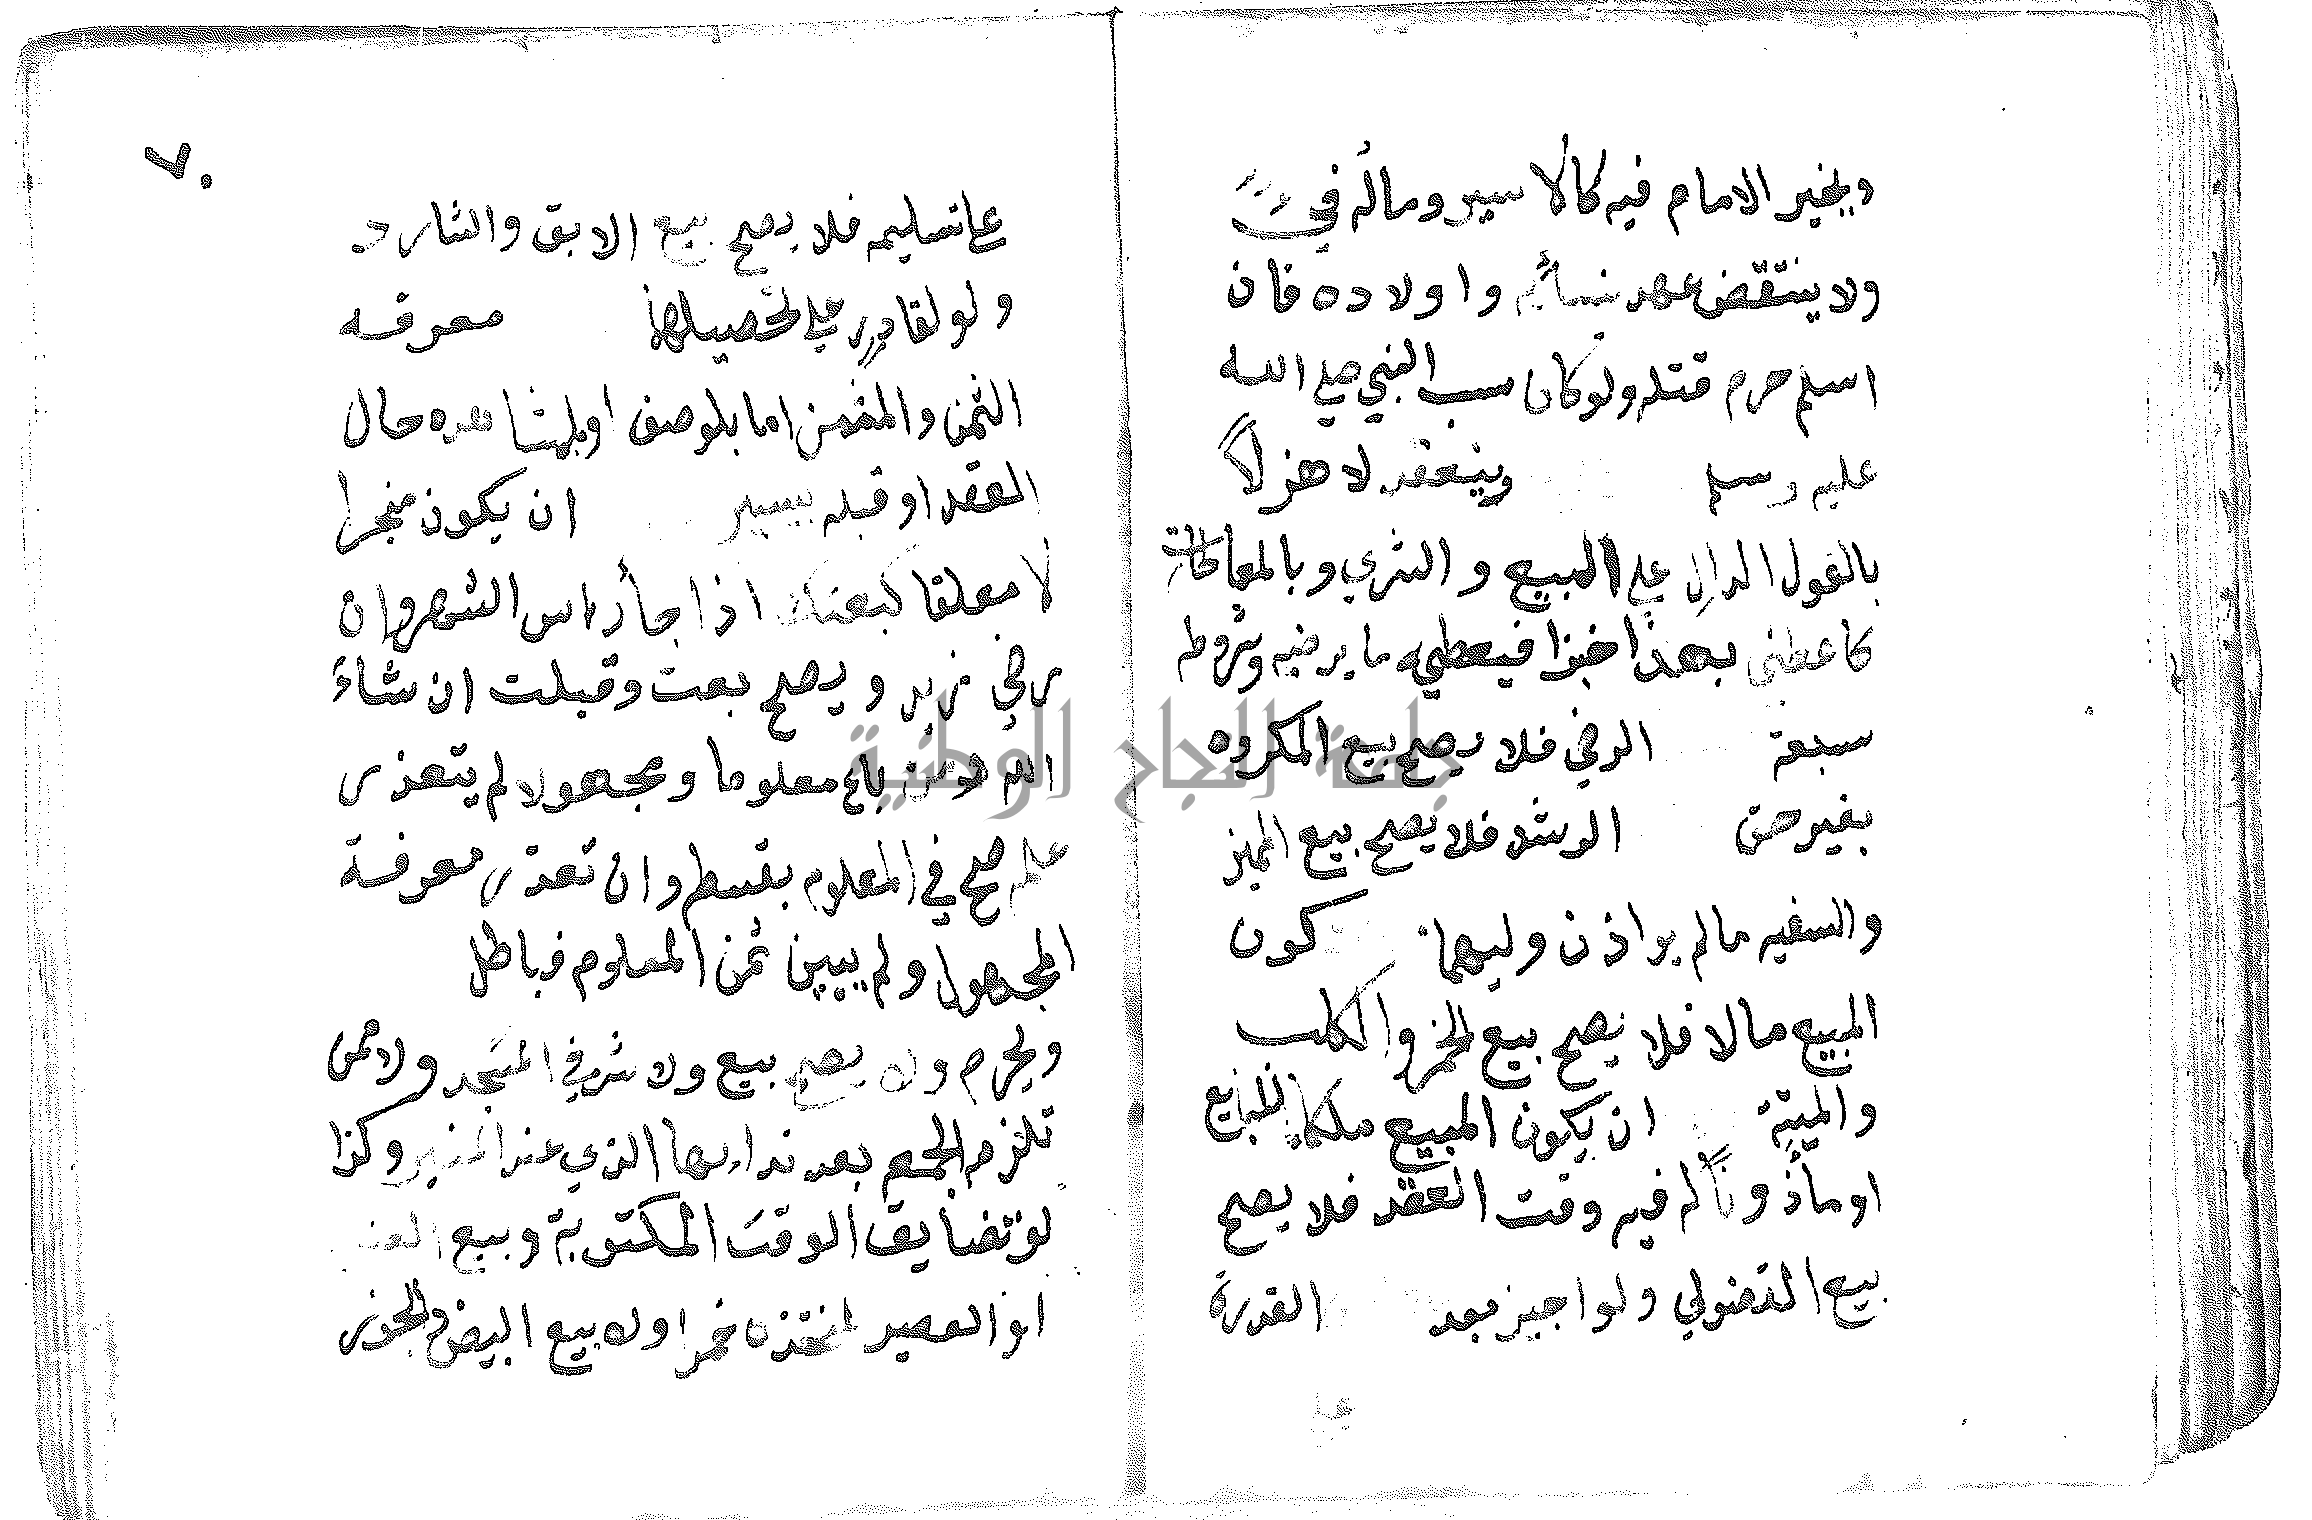 ويخير الامام فيه كالاسير وماله فيئ
ولا ينتقض عهد نسائه واولاده فان
اسلم حرم قتله ولو كان سب النبي صلى الله
عليه وسلم وينعقد لا هزلاً
بالقول الدال على البيع والشرى وبالمعاطاة
كاعطني بهذا خبزا فيعطيه ما يرضيه وشروطه
سبعة الرضى فلا يصح بيع المكروه
بغير حق الرشد فلا يصح بيع المميز
والسفيه مالم ياذن وليهما كون
المبيع مالا فلا يصح بيع الخمر والكلب
والميتة ان يكون المبيع ملكا للبايع
او ماذوناً له فيه وقت العقد فلا يصح
بيع الفضولي ولو اجيز بعد القدرة
على
٧٠
على تسليمه فلا يصح بيع الابق والشارد
ولو لقادر على تحصيلها معرفة
الثمن والمثمن اما بلوصف او بلمشاهده حال
العقد او قبله بيسير ان يكون منجرا
لا معلقا كبعتك اذا جأ رأس الشهر وان
رضي زيد ويصح بعت وقبلت ان شاءَ
الله ومن باع معلوما ومجهولا لم يتعذر
علمه صح في المعلوم بقسطه وان تعذر معرفة
المجهول ولم يبين ثمن المعلوم فباطل
ويحرم ولا يصح بيع ولا شرى في المسجد ولا ممن
تلزمه الجمعه بعد ندايها الذي عند المنبر وكذا
لو تضايق الوقت المكتوبة وبيع العنب
او العصير لمتخذه خمرا ولا بيع البيض والجوز
جامعة النجاح الوطنية